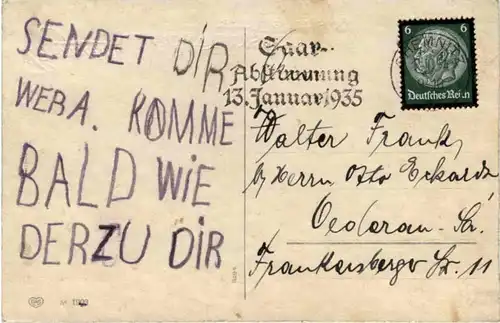 SENDET DIR
WEBA. KOMME
BALD WIE
DERZU DIR
Saar-
Abstimmung
13. Januar 1935
6 6
Deutsches Reich
Walter Frank
b/ Herrn Otto Eckardt
Oederan-Sa.
Frankenbergerstr. 11